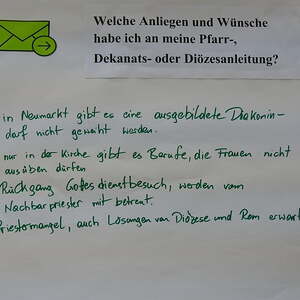 Welche Anliegen und Wünsche
habe ich an meine Pfarr-,
Dekanats- oder Diözesanleitung?
in Neumarkt gibt es eine ausgebildete Diakonin-
darf nicht geweiht werden.
nur in der Kirche gibt es Berufe, die Frauen nicht
ausüben dürfen
Rückgang Gottesdienstbesuch, werden vom
Nachbarpriester mit betreut.
Priestermangel, auch Lösungen von Diözese und Rom erwart